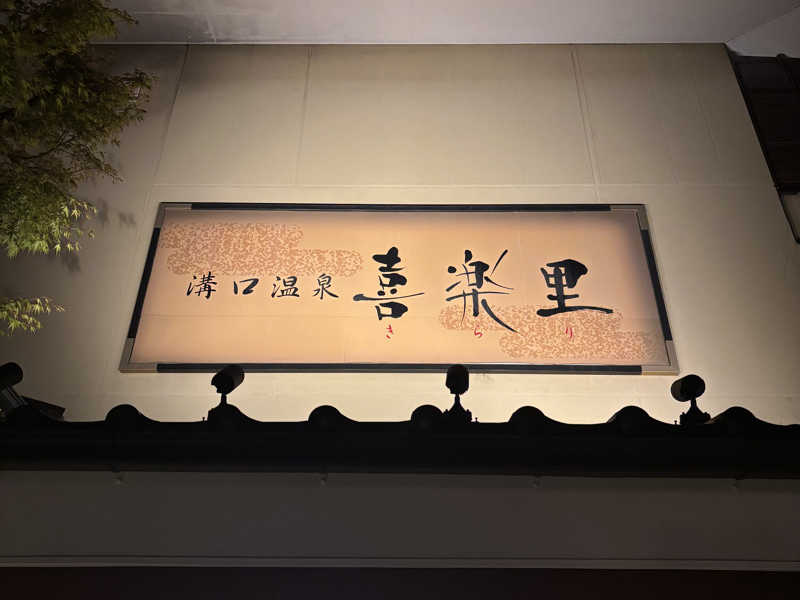 溝口温泉 喜楽里
きらり